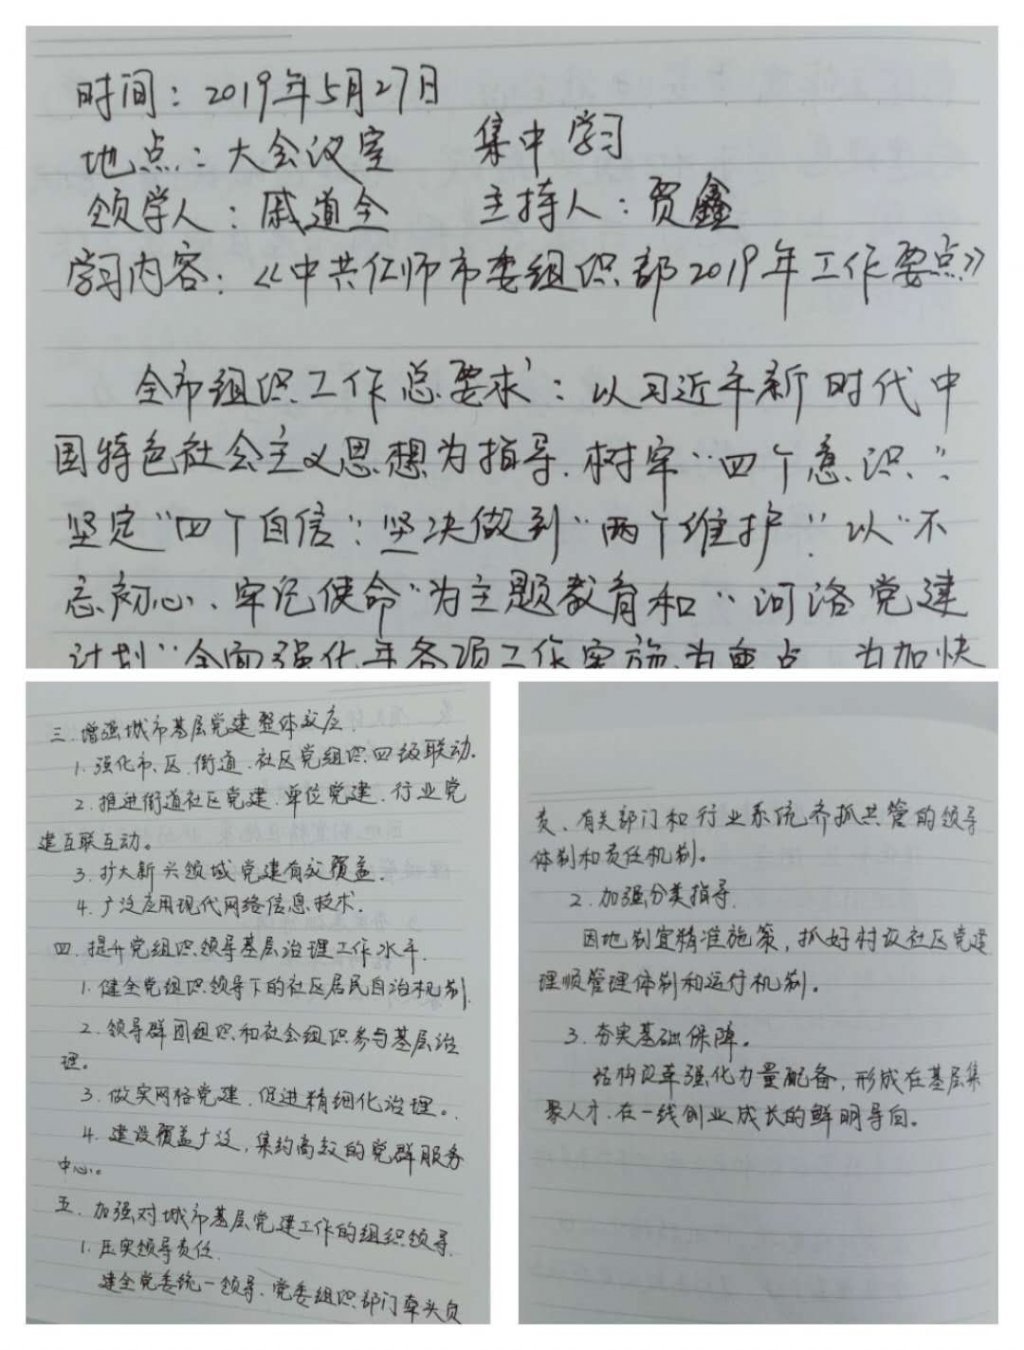 时间：2019年5月27日
地点：大会议室 集中学习
领学人：戚道全 主持人：贾鑫
学习内容：《中共仁师市委组织部2019年工作要点》
全市组织工作总要求：以习近平新时代中
国特色社会主义思想为指导.树牢“四个意识”.
坚定“四个自信”.坚决做到“两个维护”.以“不
忘初心、牢记使命”为主题教育和“河洛党建
计划”全面强化年各项工作实施为重点 为加快
三.增强城市基层党建整体效应.
1.强化市.区.街道.社区党组织四级联动.
2.推进街道社区党建.单位党建.行业党
建互联互动。
3.扩大新兴领域党建有效覆盖.
4.广泛应用现代网络信息技术.
四.提升党组织领导基层治理工作水平.
1.健全党组织领导下的社区居民自治机制
2.领导群团组织和社会组织参与基层治
理。
3.做实网格党建.促进精细化治理。
4.建设覆盖广泛，集约高效的党群服务
中心。
五.加强对城市基层党建工作的组织领导.
1.压实领导责任.
建全党委统一领导.党委组织部门牵头负
责、有关部门和行业系统齐抓共管的领导
体制和责任机制。
2.加强分类指导.
因地制宜精准施策，抓好村改社区党建
理顺管理体制和运行机制。
3.夯实基础保障。
结构改革强化力量配备，形成在基层集
聚人才.在一线创业成长的鲜明导向。